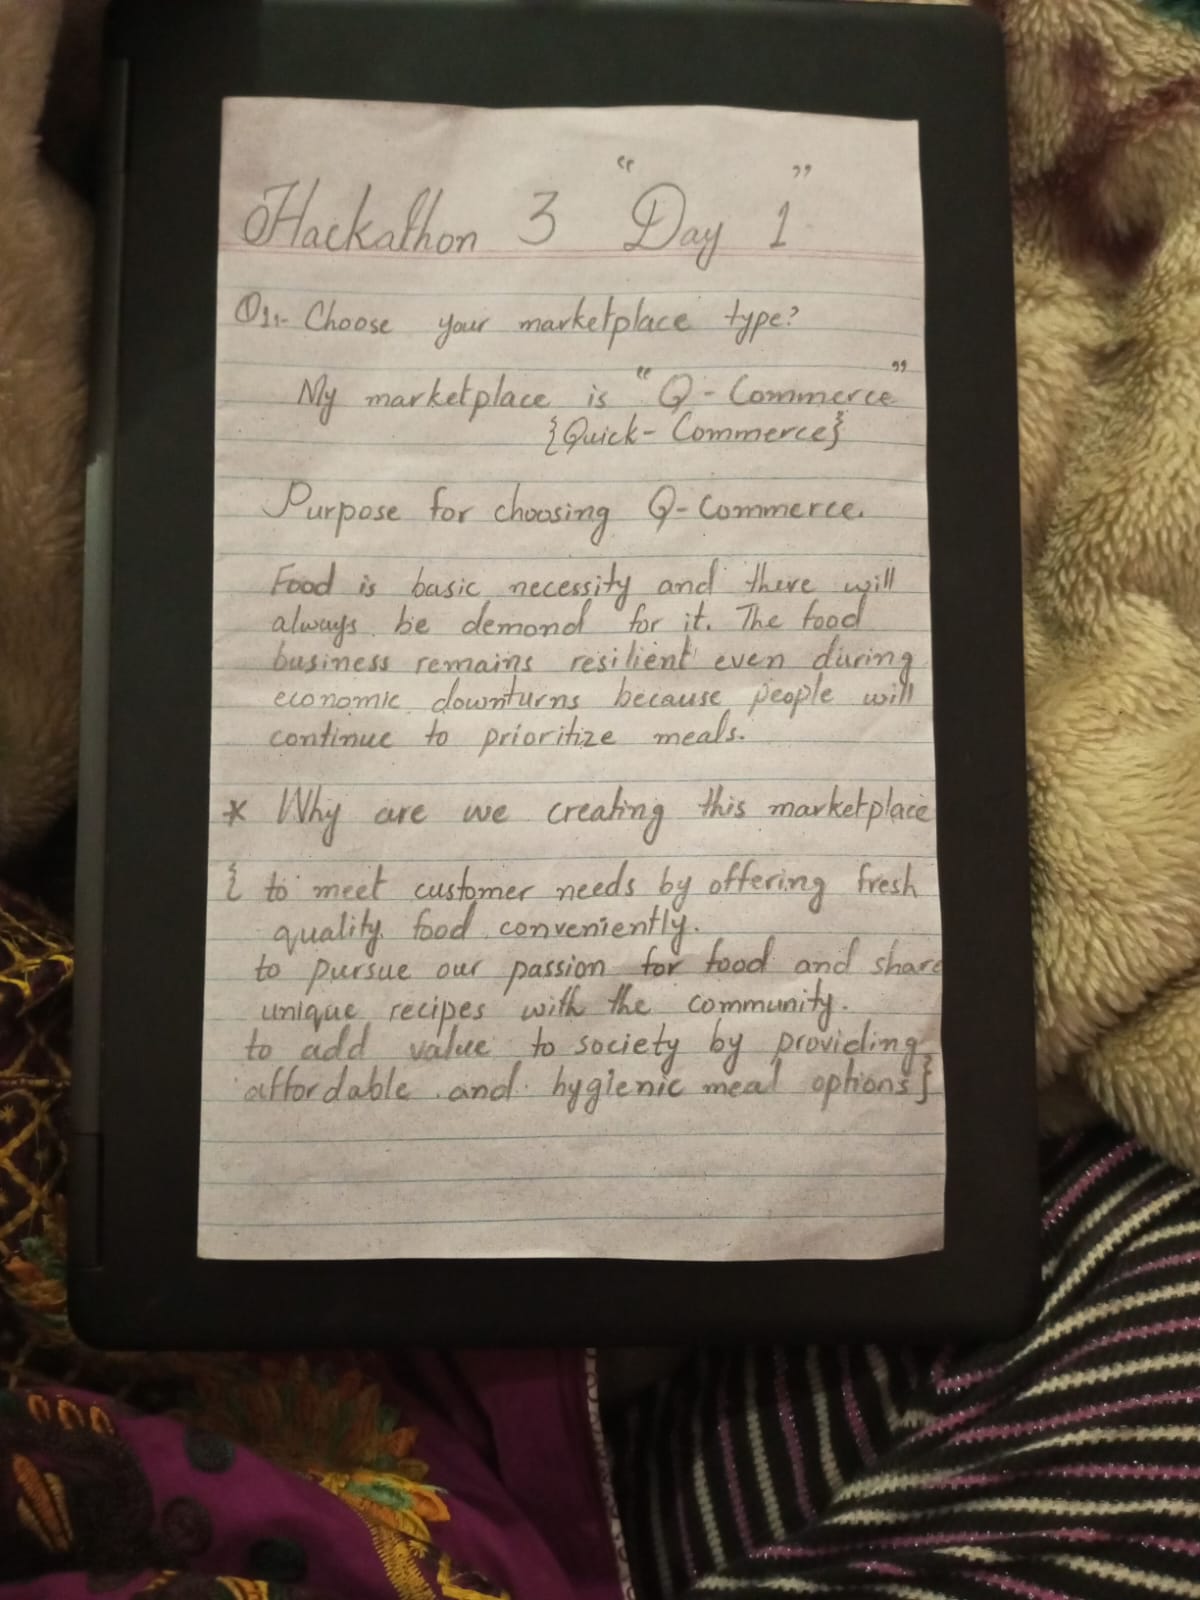 Hackathon 3 "Day 1"
Q1:- Choose your marketplace type?
My marketplace is "Q-Commerce"
{Quick-Commerce}
Purpose for choosing Q-Commerce.
Food is basic necessity and there will
always be demond for it. The food
business remains resilient even during
economic downturns because people will
continue to prioritize meals.
* Why are we creating this marketplace
{ to meet customer needs by offering fresh
quality food conveniently.
to pursue our passion for food and share
unique recipes with the community.
to add value to society by providing
affordable and hygienic meal options}